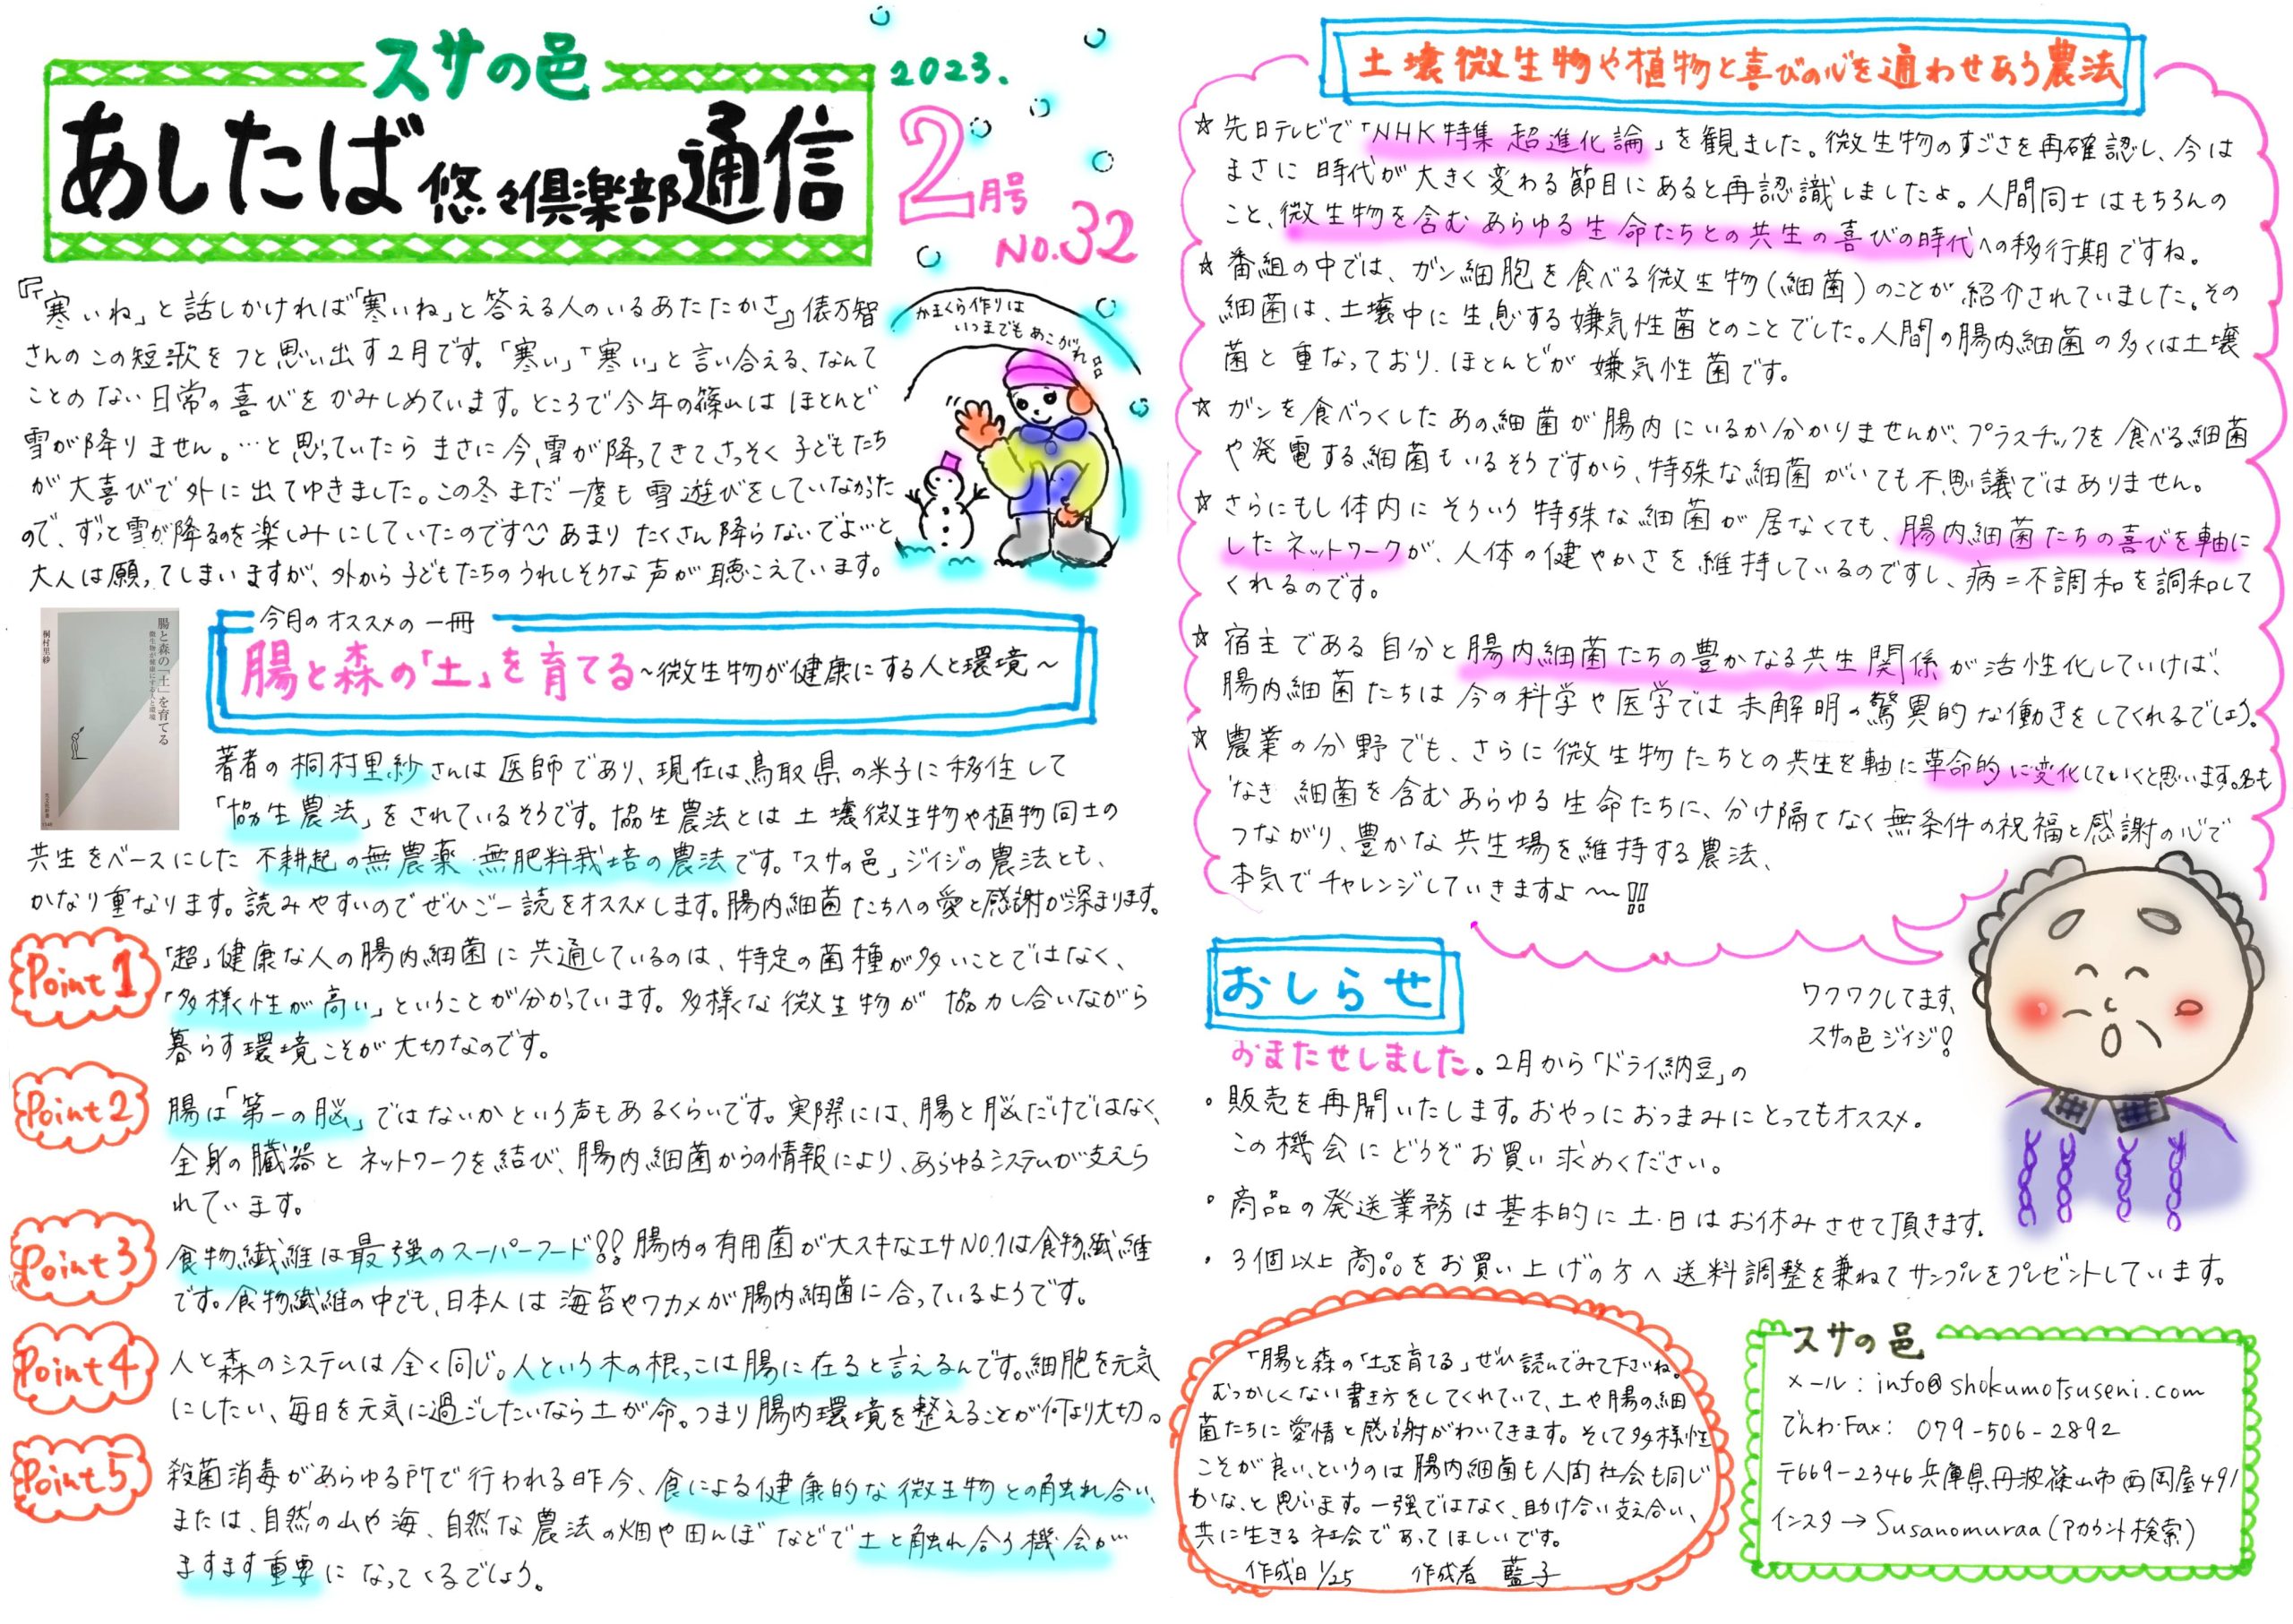 スサの邑
あしたば悠々倶楽部通信
2023.
2月号
NO.32
『「寒いね」と話しかければ「寒いね」と答える人のいるあたたかさ』俵万智
さんのこの短歌をフと思い出す2月です。「寒い」「寒い」と言い合える、なんて
ことのない日常の喜びをかみしめています。ところで今年の篠山はほとんど
雪が降りません。…と思っていたらまさに今、雪が降ってきてさっそく子どもたち
が大喜びで外に出てゆきました。この冬まだ一度も雪遊びをしていなかった
ので、ずっと雪が降るのを楽しみにしていたのです あまりたくさん降らないでよ…と
大人は願ってしまいますが、外から子どもたちのうれしそうな声が聴こえています。
かまくら作りは
いつまでもあこがれ
今月のオススメの一冊
腸と森の「土」を育てる~微生物が健康にする人と環境~
腸と森の「土」を育てる
微生物が健康にする人と環境
桐村里紗
著者の桐村里紗さんは医師であり、現在は鳥取県の米子に移住して
「協生農法」をされているそうです。協生農法とは土壌微生物や植物同士の
共生をベースにした不耕起の無農薬・無肥料栽培の農法です。「スサの邑」ジイジの農法とも、
かなり重なります。読みやすいのでぜひご一読をオススメします。腸内細菌たちへの愛と感謝が深まります。
Point1
「超」健康な人の腸内細菌に共通しているのは、特定の菌種が多いことではなく、
「多様く性が高い」ということが分かっています。多様くな微生物が協力し合いながら
暮らす環境こそが大切なのです。
Point2
腸は「第一の脳」ではないかという声もあるくらいです。実際には、腸と脳だけではなく、
全身の臓器とネットワークを結び、腸内細菌からの情報により、あらゆるシステムが支えら
れています。
Point3
食物繊維は最強のスーパーフード!! 腸内の有用菌が大スキなエサNO.1は食物繊維
です。食物繊維の中でも、日本人は海苔やワカメが腸内細菌に合っているようです。
Point4
人と森のシステムは全く同じ。人という木の根っこは腸に在ると言えるんです。細胞を元気
にしたい、毎日を元気に過ごしたいなら土が命。つまり腸内環境を整えることが何より大切。
Point5
殺菌消毒があらゆる所で行われる昨今、食による健康的な微生物との触れ合い、
または、自然の山や海、自然な農法の畑や田んぼなどで土と触れ合う機会が
ますます重要になってくるでしょう。
土壌微生物や植物と喜びの心を通わせあう農法
☆ 先日テレビで「NHK特集 超進化論」を観ました。微生物のすごさを再確認し、今は
まさに時代が大きく変わる節目にあると再認識しましたよ。人間同士はもちろんの
こと、微生物を含むあらゆる生命たちとの共生の喜びの時代への移行期ですね。
☆ 番組の中では、ガン細胞を食べる微生物(細菌)のことが紹介されていました。その
細菌は、土壌中に生息する嫌気性菌とのことでした。人間の腸内細菌の多くは土壌
菌と重なっており、ほとんどが嫌気性菌です。
☆ ガンを食べつくしたあの細菌が腸内にいるか分かりませんが、プラスチックを食べる細菌
や発電する細菌もいるそうですから、特殊な細菌がいても不思議ではありません。
☆ さらにもし体内にそういう特殊な細菌が居なくても、腸内細菌たちの喜びを軸に
したネットワークが、人体の健やかさを維持しているのですし、病=不調和を調和して
くれるのです。
☆ 宿主である自分と腸内細菌たちの豊かなる共生関係が活性化していけば、
腸内細菌たちは今の科学や医学では未解明の驚異的な働きをしてくれるでしょう。
☆ 農業の分野でも、さらに微生物たちとの共生を軸に革命的に変化していくと思います。名も
なき細菌を含むあらゆる生命たちに、分け隔てなく無条件の祝福と感謝の心で
つながり、豊かな共生場を維持する農法、
本気でチャレンジしていきますよ~!!
ワクワクしてます、
スサの邑ジイジ!
おしらせ
おまたせしました。2月から「ドライ納豆」の
・販売を再開いたします。おやつにおつまみにとってもオススメ。
この機会にどうぞお買い求めください。
・商品の発送業務は基本的に土・日はお休みさせて頂きます。
・3個以上商品をお買い上げの方へ送料調整を兼ねてサンプルをプレゼントしています。
「腸と森の「土を育てる」ぜひ読んでみて下さいね。
むつかしくない書き方をしてくれていて、土や腸の細
菌たちに愛情と感謝がわいてきます。そして多様性
こそが良い、というのは腸内細菌も人間社会も同じ
かな、と思います。一強ではなく、助け合い支え合い、
共に生きる社会であってほしいです。
作成日1/25 作成者 藍子
スサの邑
メール:info@shokumotsuseni.com
でんわ・Fax: 079-506-2892
〒669-2346兵庫県丹波篠山市西岡屋491
インスタ→Susanomuraa(アカウント検索)